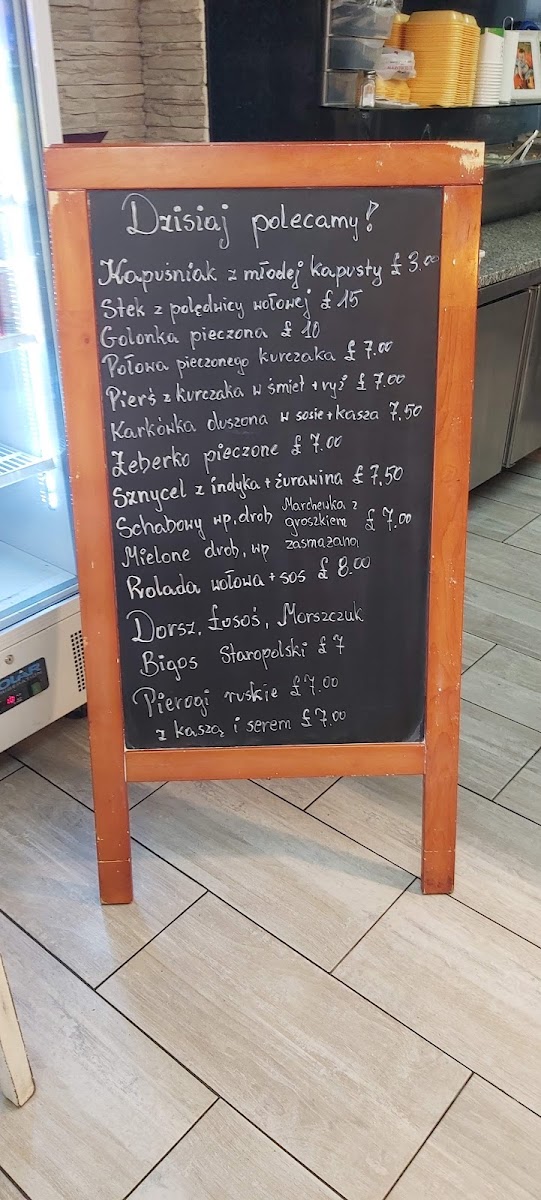 Dzisiaj polecamy!
Kapuśniak z młodej kapusty £ 3.00
Stek z polędwicy wołowej £ 15
Golonka pieczona £ 10
Połowa pieczonego kurczaka £ 7.00
Pierś z kurczaka w śmiet + ryż £ 7.00
Karkówka duszona w sosie + kasza 7,50
Żeberko pieczone £ 7.00
Sznycel z indyka + żurawina £ 7,50
Schabowy wp, drob Marchewka z groszkiem £ 7.00
Mielone drob, wp zasmażana
Rolada wołowa + sos £ 8.00
Dorsz, Łosoś, Morszczuk
Bigos Staropolski £ 7
Pierogi ruskie £ 7.00
z kaszą i serem £ 7.00